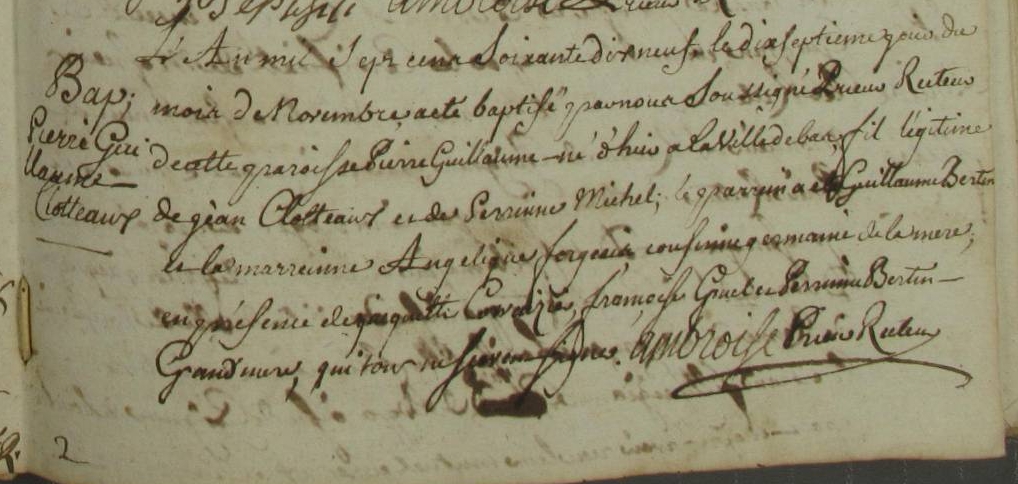 ambroise Prieur R
L'An mil Sept cent Soixante dix neuf le dixseptieme jour du
Bap; mois de Novembre, a eté baptisé par nous Soussigné Prieur Recteur
Pierre Gui de cette paroisse Pierre Guillaume né d'hier a la Ville de bas, fil légitime
llaume
Clolteaux de géan Clolteaux et de Perrinne Michel; le parrein a eté Guillaume Bertin
et la marreinne Angelique forgeais cousinne germaine de la mere,
en présence de françois Gruel et Perrinne Bertin
Grand mere, qui tous ne Sçavent Signer. ambroise Prieur Recteur
2